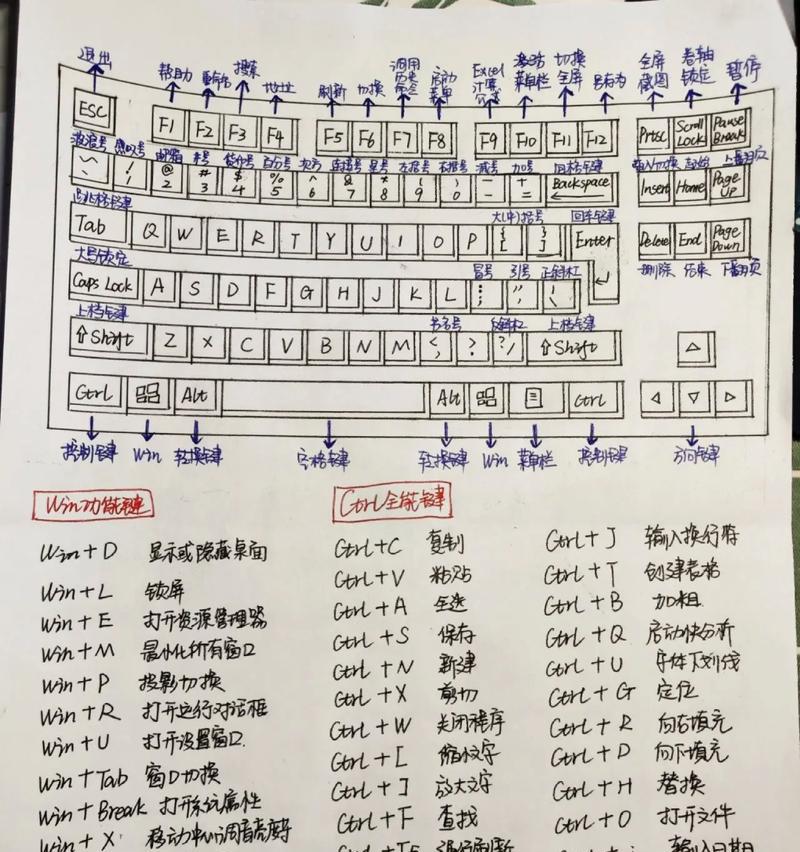 退出 帮助 重命名 搜索 地址 刷新 切换 调用历史命令 启动菜单 Excel计算公式 激活菜单栏 切换全屏 另存为 全屏截图 卷轴锁定 暂停
ESC F1 F2 F3 F4 F5 F6 F7 F8 F9 F10 F11 F12 Prtsc Scroll Lock Pause Break
波浪号 感叹号 邮箱 井号 货币号 百分号 次方 连接号 星号 左括号 右括号 减号 加号 退格键 插入切换 起始 上翻页
~ ` ! 1 @ 2 # 3 $ 4 % 5 ^ 6 & 7 * 8 ( 9 ) 0 - - + = Backspace Insert Home Page UP
大(中)括号 回车键
Tab Q W E R T Y U I O P { [ } ] Enter Delete End Page Down
大写锁定 冒号 引号 正斜杠 删除 结束 下翻页
Caps Lock A S D F G H J K L : ; " ' | \
上档键 书名号 上档键
⇧Shift Z X C V B N M < , > . ? / ⇧Shift △
Ctrl Alt Alt Ctrl ◁ ▽ ▷
控制键 Win 转换键 空格键 转换键 Win 菜单栏 控制键 方向键
Win功能键
Win+D 显示或隐藏桌面
Win+L 锁屏
Win+E 打开资源管理器
Win+M 最小化所有窗口
Win+P 投影切换
Win+R 打开运行对话框
Win+U 打开设置窗口.
Win+Tab 窗口切换
Win+Break 打开系统属性
Win+X 移动中心调音亮度
Ctrl全能键
Ctrl+C 复制
Ctrl+V 粘贴
Ctrl+A 全选
Ctrl+S 保存
Ctrl+N 新建
Ctrl+X 剪切
Ctrl+W 关闭程序
Ctrl+[ 缩小文字
Ctrl+] 放大文字
Ctrl+F 查找
Ctrl+J 输入换行符
Ctrl+T 创建表格
Ctrl+B 加粗
Ctrl+Q 启动快分析
Ctrl+U 字体下划线
Ctrl+G 定位
Ctrl+R 向右填充
Ctrl+D 向下填充
Ctrl+H 替换
Ctrl+O 打开文件
输入日期